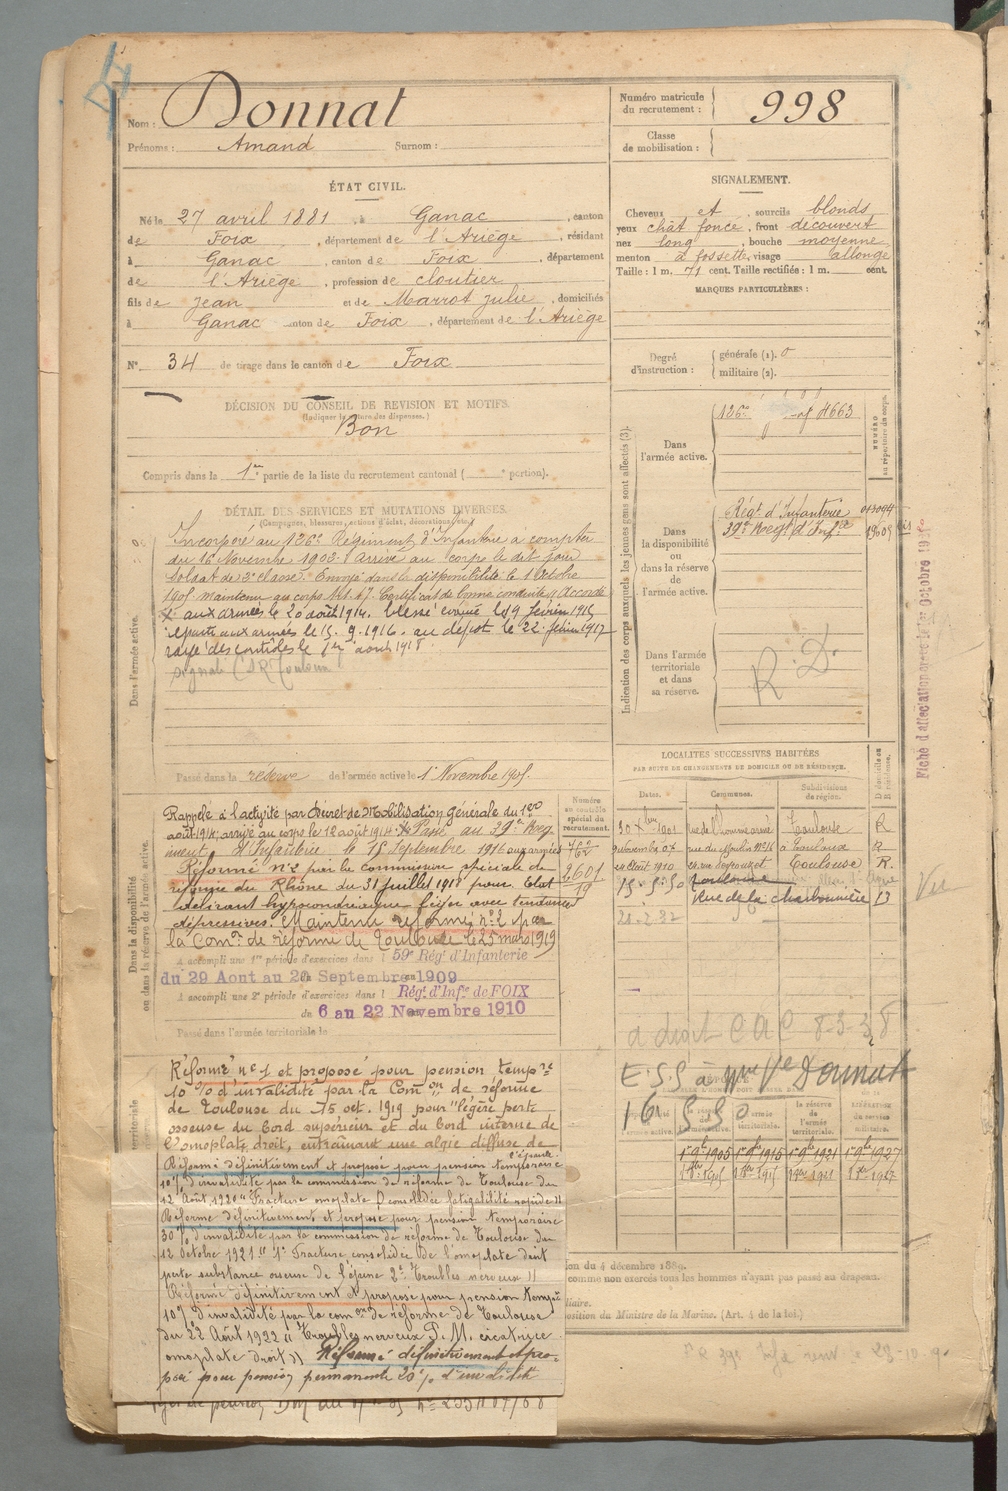 Nom : Donnat
Prénoms : Amand Surnom :
Numéro matricule du recrutement : 998
Classe de mobilisation :
ÉTAT CIVIL.
Né le 27 avril 1881, à Ganac, canton
de Foix, département de l'Ariège, résidant
à Ganac, canton de Foix, département
de l'Ariège, profession de cloutier
fils de Jean et de Marrot Julie, domiciliés
à Ganac canton de Foix, département de l'Ariège
N° 34 de tirage dans le canton de Foix
SIGNALEMENT.
Cheveux et, sourcils blonds
yeux chât foncé, front découvert
nez long, bouche moyenne
menton à fossette, visage allongé
Taille : 1 m. 71 cent. Taille rectifiée : 1 m. cent.
MARQUES PARTICULIÈRES :
Degré d'instruction : générale (1). 0
militaire (2).
DÉCISION DU CONSEIL DE REVISION ET MOTIFS.
Bon
Compris dans la 1re partie de la liste du recrutement cantonal ( e portion).
Indication des corps auxquels les jeunes gens sont affectés (3).
NUMÉRO au répertoire du corps.
Dans l'armée active.
126e
Dans la disponibilité ou dans la réserve de l'armée active.
Régt d'Infanterie
39e Régt d'Infie
Dans l'armée territoriale et dans sa réserve.
R. D.
DÉTAIL DES SERVICES ET MUTATIONS DIVERSES.
(Campagnes, blessures, actions d'éclat, décorations, etc.)
Dans l'armée active.
Incorporé au 126e Régiment d'Infanterie à compter
du 16 Novembre 1902. Arrivé au corps le dit jour
soldat de 2e classe. Envoyé dans la disponibilité le 1 Octobre
1905 maintenu au corps Certificat de bonne conduite Accordé
aux armées le 20 août 1914. blessé évacué le 19 février 1915
reparti aux armées le 15. 9. 1916. au dépôt le 22 février 1917
rayé des contrôles le 1er août 1918
Passé dans la réserve de l'armée active le 1 Novembre 1905.
Dans la disponibilité ou dans la réserve de l'armée active.
Rappelé à l'activité par Décret de Mobilisation Générale du 1er
août 1914; arrivé au corps le 12 août 1914 Passé au 39e Rég
iment d'Infanterie le 15 Septembre 1916 aux armées
Réformé n°2 par la commission spéciale de
réforme du Rhône du 31 juillet 1918 pour Etat
délirant hypocondriaque léger avec tendances
dépressives. Maintenu réformé n°2 par
la Comon de réforme de Toulouse le 25 mars 1919
A accompli une 1re période d'exercices dans l 59e Régt d'Infanterie
du 29 Aout au 20 Septembre 1909
A accompli une 2e période d'exercices dans l Régt d'Infie de FOIX
du 6 au 22 Novembre 1910
Passé dans l'armée territoriale le
Numéro au contrôle spécial du recrutement.
2601
19
LOCALITÉS SUCCESSIVES HABITÉES
PAR SUITE DE CHANGEMENTS DE DOMICILE OU DE RÉSIDENCE.
Dates. Communes. Subdivisions de région. D domicile ou R résidence.
30 Xbre 1901 Toulouse R
9 Novembre 07 rue du Moulin N°16 à Toulouse R
Toulouse R.
15. 5. 30 Toulouse
Rue de la charbonnière D
Vu
Fiche d'affectation
E.S.S à Mme Vve Donnat
1er 9bre 1905 1er 9bre 1915 1er 9bre 1921 1er 9bre 1927
Réformé n°1 et proposé pour pension tempre
10 % d'invalidité par la Comon de réforme
de Toulouse du 15 oct. 1919 pour "légère perte
osseuse du bord supérieur et du bord interne de
l'omoplate droit, entraînant une algie diffuse de
l'épaule.
Réformé définitivement et proposé pour pension temporaire
10 % d'invalidité par la commission de réforme de Toulouse du
12 Août 1920 "Fracture omoplate D consolidée fatigabilité rapide"
Réformé définitivement et proposé pour pension temporaire
30 % d'invalidité par la commission de réforme de Toulouse du
12 Octobre 1921 "1° Fracture consolidée de l'omoplate droit
perte substance osseuse de l'épine 2° Troubles nerveux"
Réformé définitivement et proposé pour pension tempre
10 % d'invalidité par la comon de réforme de Toulouse
du 22 Août 1922 "Troubles nerveux P.M. cicatrice
omoplate droit" Réformé définitivement et pro-
posé pour pension permanente 20 % d'invalidité
du 4 décembre 1889.
comme non exercés tous les hommes n'ayant pas passé au drapeau.
du Ministre de la Marine. (Art. 4 de la loi.)